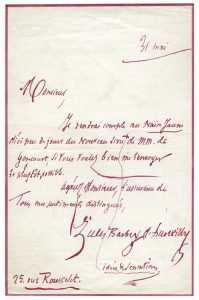 31 mai
Monsieur,
Je rendrai compte au Nain Jaune
d'ici peu de jours du nouveau livre de MM. de
Goncourt, si vous voulez bien me l'envoyer
le plus tôt possible.
Agréez Monsieur, l'assurance de
tous mes sentiments distingués,
Jules Barbey d'Aurevilly
25. rue Rousselet.